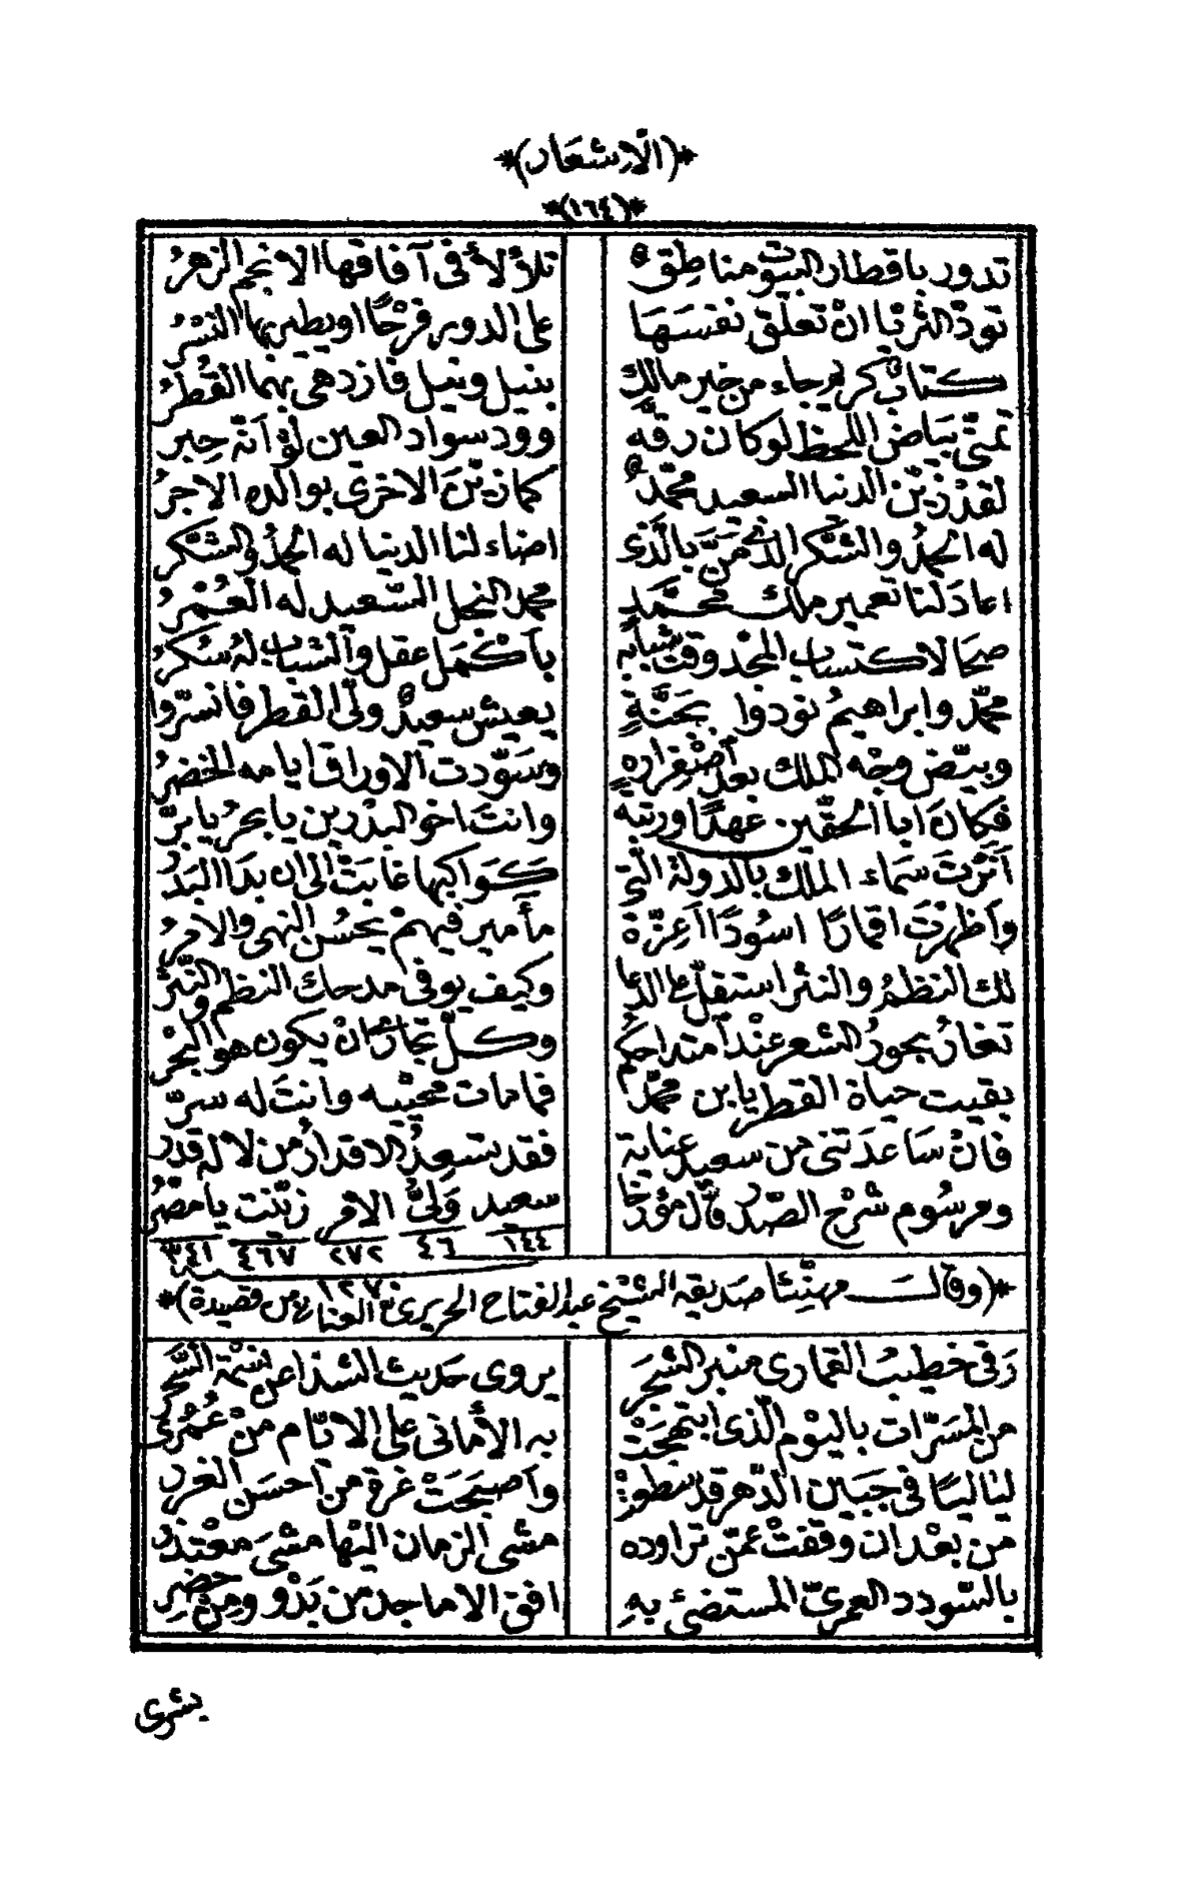 *(الاشعار)*
*(١٦٤)*
تدور باقطار البيوت مناطق تلألأ فى آفاقها الانجم الزهرُ
تودّ الثريّا انْ تعلّق نفسَهَا على الدور فرْحًا او يطير بها النسْرُ
كتابٌ كريم جاء من خير مالك بنيل ونيل فازدهى بهما القُطرُ
تمنّى بَيَاضُ اللحظ لو كان رقّه وودّ سواد العين لوْ اَنّه حِبر
لقدْ زيّن الدنيا السعيد محمّدٌ كما زيّنَ الاخرى بوالده الاجرُ
له الحمدُ والشّكر الذى مَنَّ بالّذى اضاء لنا الدنيا له الحمدُ والشكر
اعادَ لنا تعمير ملك محمّد محمد النجل السّعيد له العُمْرُ
صَحَا لاكتساب المجْد وقت شبابه باَكْمَل عقل والشباب لهُ سُكرُ
محمّد وابراهيمُ نودوا بجَنّةٍ يعيش سعيدٌ ولّى القطر فانسرّوا
وبيّض وجْه الملك بعد اصْفراره وسَوّدت الاوراق ايامه الخضرُ
فكانَ ابا الحقّين عَهدًا ورتبةً وانتَ اخو البدْرين يا بحرُ يا برّ
اَنَرْتَ سَمَاء الملك بالدولة الّتى كَوَاكبها غابتْ الى ان بدَا البَدْرُ
وَاظهرْتَ اقمارًا اسُودًا اَعِزّة مآمير فيهمْ يحسُن النهى والامرُ
لك النظمُ والنثر استقلّا على الدعا وكيف يوفى مدحك النظم والنّثرُ
تغارُ بحورُ الشعر عنْد امتداحكمْ وكلّ تمارى انْ يكون هو البحْرُ
بقيت حياة القطر يا ابن محمّد فما مات محييه وانتَ له سرّ
فانْ سَاعدَتنى من سعيد عناية فقد يسَعِدُ الاقدارُ من لا له قدرُ
ومرسُوم شرْح الصّدر قال مؤرّخا سعيد وَلىُّ الامر زيّنت يا مصْرُ
١٤٤ ٤٦ ٢٧٢ ٤٦٧ ٣٤١
١٢٧٠
*(وقالـــ مهنّئا صديقه الشيخ عبد الفتاح الحريرى من قصيدة)*
رَقى خطيبُ القمارى منبر الشجَر يروى حَديث الشذا عن نسْمة السَّحَر
من المسَرّات باليوْم الّذى ابتهجَتْ به الأمانى على الايّام منْ عُمُرى
لنا ليَا فى جَبين الدّهر قد سُطورْ: وَاَصبحَتْ غرة من احسَن الغرر
من بعْد ان وقفتْ عمّن تراوده مشى الزمان اليْها مشىَ معْتذرُ
بالسّودد العمرىّ المستضئ بهِ افق الاماجد من بَدْوٍ ومِن حضَرِ
بشرى